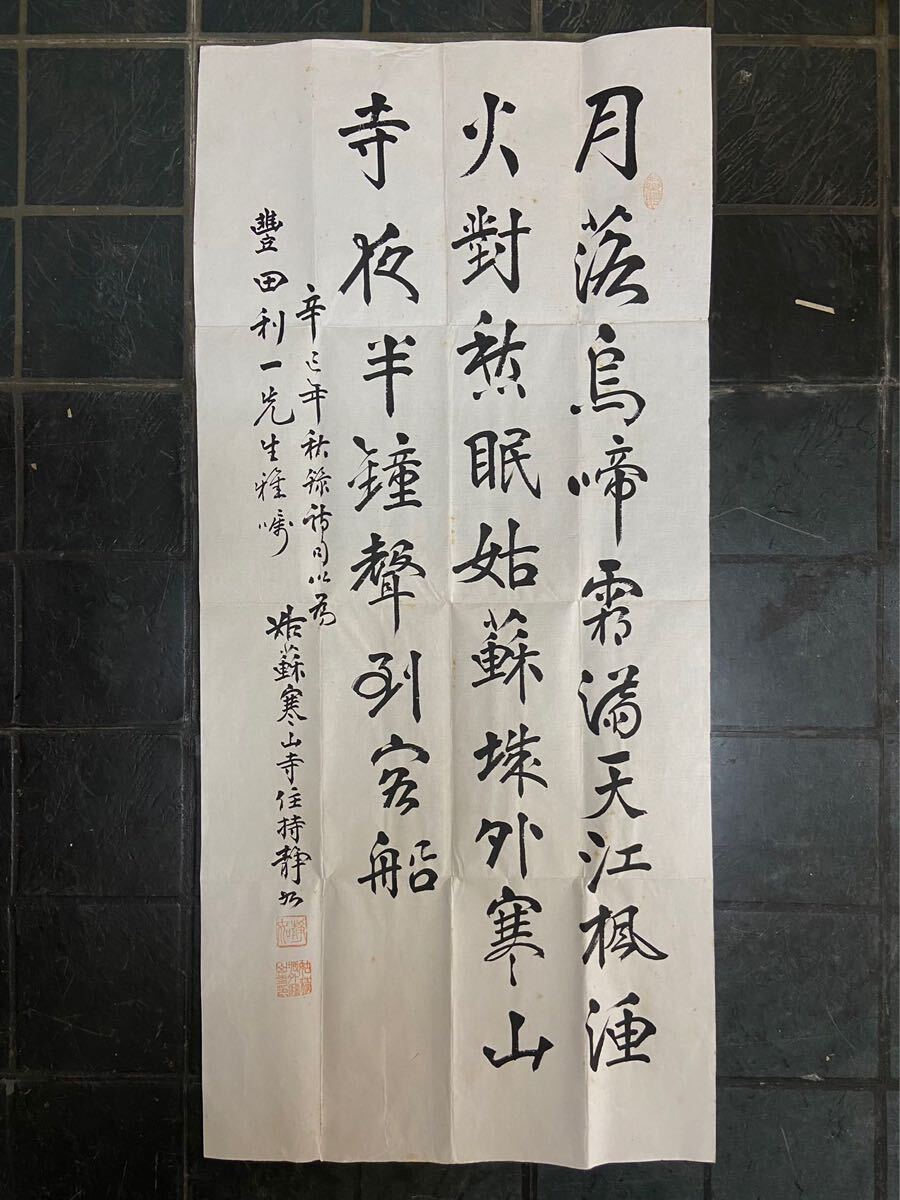 月落烏啼霜滿天江楓漁
火對愁眠姑蘇城外寒山
寺夜半鐘聲到客船
辛巳年秋錄詩句以為
豐田利一先生雅囑
姑蘇寒山寺住持靜如
靜如